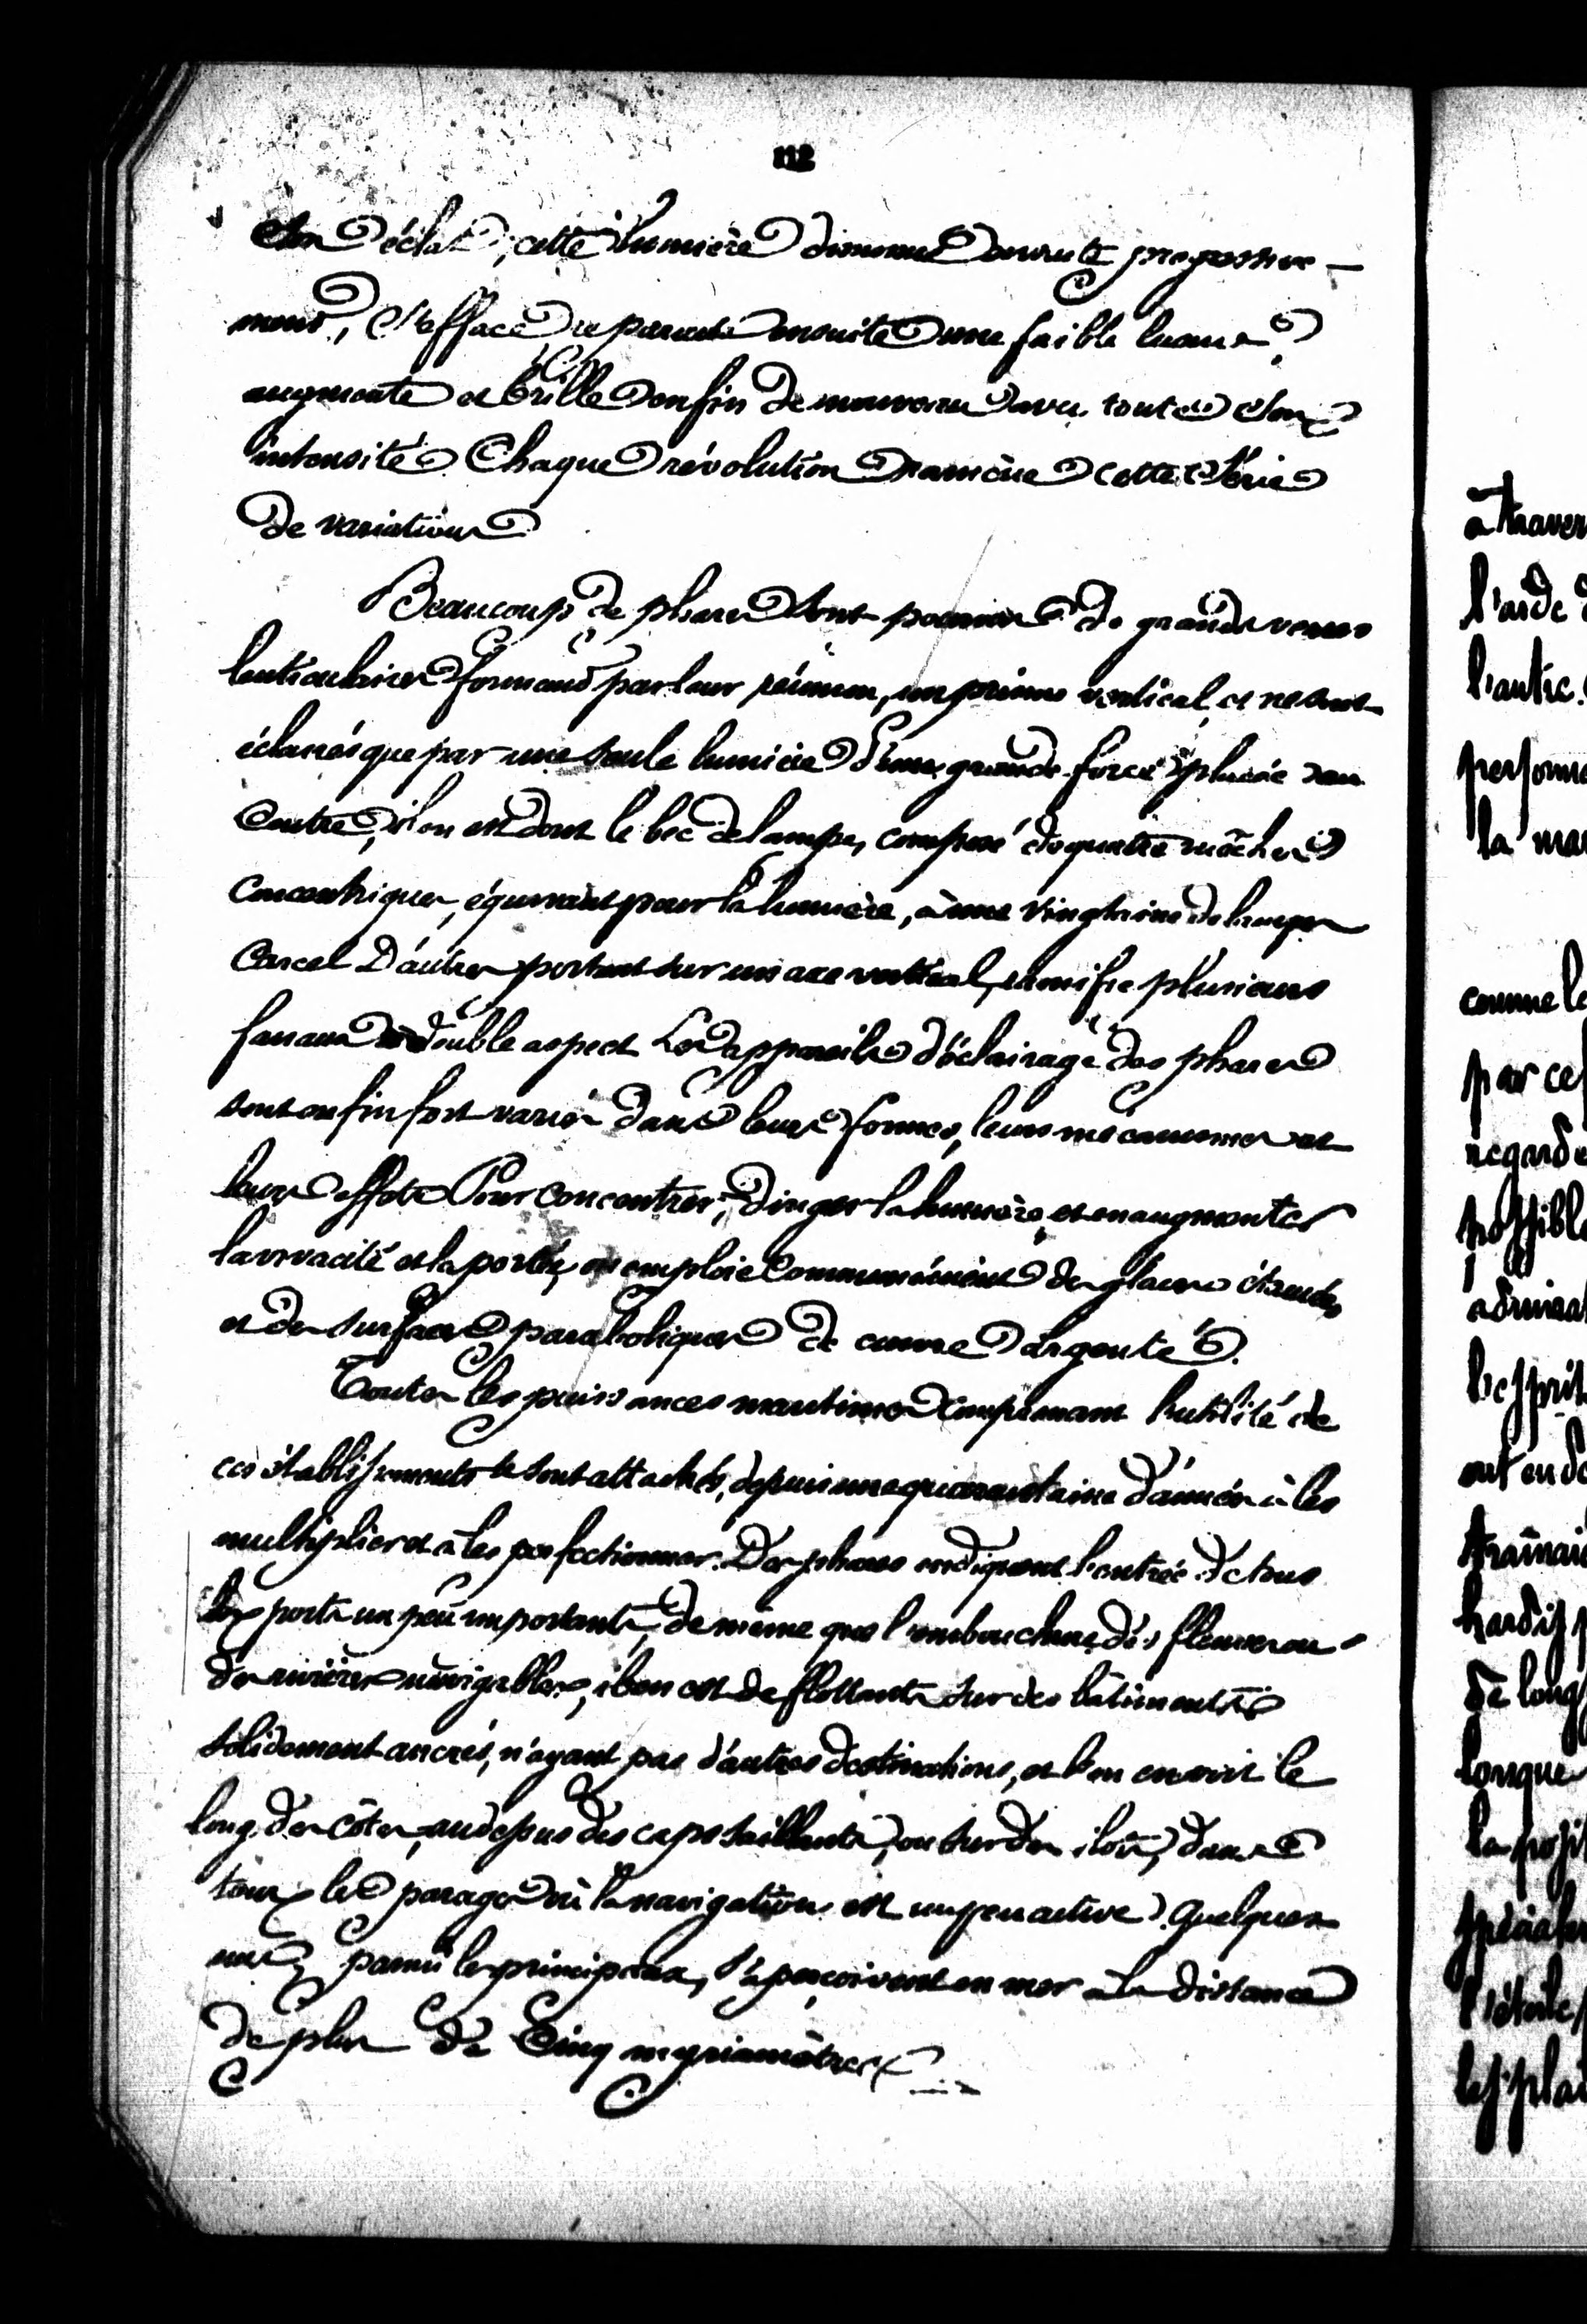 112
son éclat; cette lumière diminue ensuite progressive-
ment, s'efface, reparaît ensuite une faible lueur,
augmente et brille enfin de nouveau avec toute son
intensité. Chaque révolution ramène cette série
de variations
Beaucoup de phares sont pourvus de grands verres
lenticulaires formant par leur réunion, un prisme vertical, et ne sont
éclairés que par une seule lumière d'une grande force placée au
centre, il en est dont le bec de lampe, composé de quatre mèches
concentriques, équivaut pour la lumière, à une vingtaine de lampes
Carcel D'autres portent sur un axe vertical, ramifié plusieurs
fanaux à double aspect Les appareils d'éclairage des phares
sont enfin fort variés dans leurs formes, leurs mécanismes et
leurs effets Pour concentrer, diriger la lumière, et en augmenter
la vivacité et la portée, on emploie communément des glaces étamées
et des surfaces paraboliques de cuivre argenté.
Toutes les puissances maritimes comprenant l'utilité de
ces établissements se sont attachés, depuis une quarantaine d'années à les
multiplier et à les perfectionner. Des phares indiquent l'entrée de tous
les ports un peu importants, de même que l'embouchure des fleuves ou
des rivières navigables, il en est de flottants sur des bâtiments
solidement ancrés, n'ayant pas d'autres destinations, et l'on en voit le
long des côtes, au dessus des caps saillants, ou sur des ilots, dans
tous les parages où la navigation est un peu active. Quelques
uns, parmi les principaux, s'aperçoivent en mer à la distance
de plus de Cinq myriamètres
à traver
l'aide d
l'autre
personne
la ma
comme le
par cel
regarde
possible
admirat
l'esprit
ont en de
traînai
hardis p
de long
lorsque
la posit
spéciale
l'étoile,
les plai